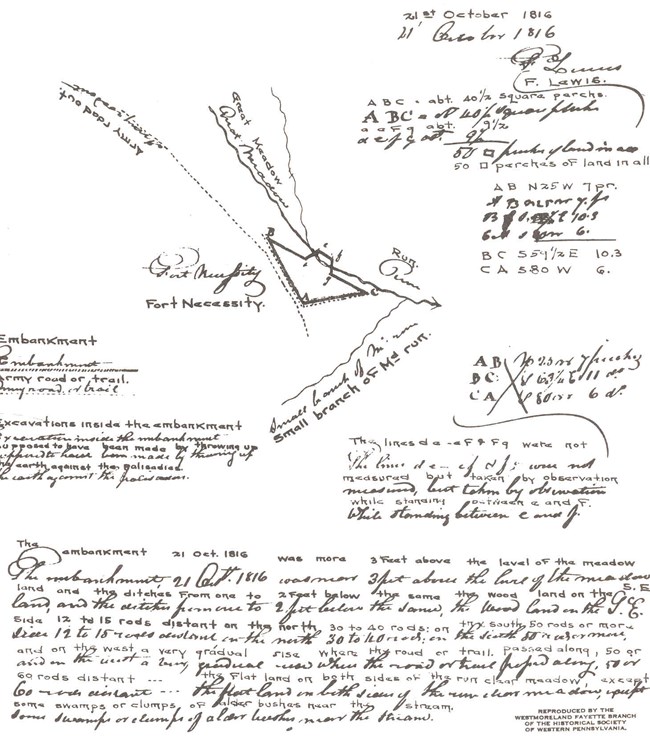 21st October 1816
21' October 1816
F. Lewis
F. LEWIS.
A B C = abt. 40 1/2 square perchs.
A B C = abt 40 1/2 square perches
a e F g abt. 9 1/2
a e f g abt. 9 1/2
50 □ perches of land in all
50 □ perches of land in all
A B N 25 W 7 pr.
B C S 59 1/2 E 10.3
C A S 80 W 6.
Army road out
Great Meadow
Great Meadow
Run.
Run
B
C
Fort Necessity
FORT NECESSITY.
Small branch of Md run.
Small branch of Md run.
Embankment
Embankment
Army road or trail.
Army road or trail
Excavations inside the embankment
Excavation inside the embankment
supposed to have been made by throwing up
supposed to have been made by throwing up
the earth against the palisades.
the earth against the palisades.
AB
BC: 11
CA 6 do.
The lines d e - e F & F g were not
The lines d e - e f & f g were not
measured but taken by observation
measured, but taken by observation
while standing between e and F.
While standing between e and f.
The embankment 21 Oct. 1816 was more 3 Feet above the level of the meadow
The embankment, 21 Oct. 1816 was near 3 feet above the level of the meadow
land and the ditches From one to 2 Feet below the same the wood land on the S. E
land, and the ditches from one to 2 feet below the same, the wood land on the S. E.
side 12 to 15 rods distant on the north 30 to 40 rods: on the south 50 rods or more
side 12 to 15 rods distant on the north 30 to 40 rods, on the south 50 rods or more,
and on the west a very gradual rise where the road or trail passed along, 50 or
and on the west a very gradual rise where the road or trail passed along, 50 or
60 rods distant --- the flat land on both sides of the run clear meadow, except
60 rods distant --- the flat land on both sides of the run clear meadow, except
some swamps or clumps, of alder bushes near the stream.
some swamps or clumps of alder bushes near the stream.
REPRODUCED BY THE
WESTMORELAND FAYETTE BRANCH
OF THE HISTORICAL SOCIETY
OF WESTERN PENNSYLVANIA.